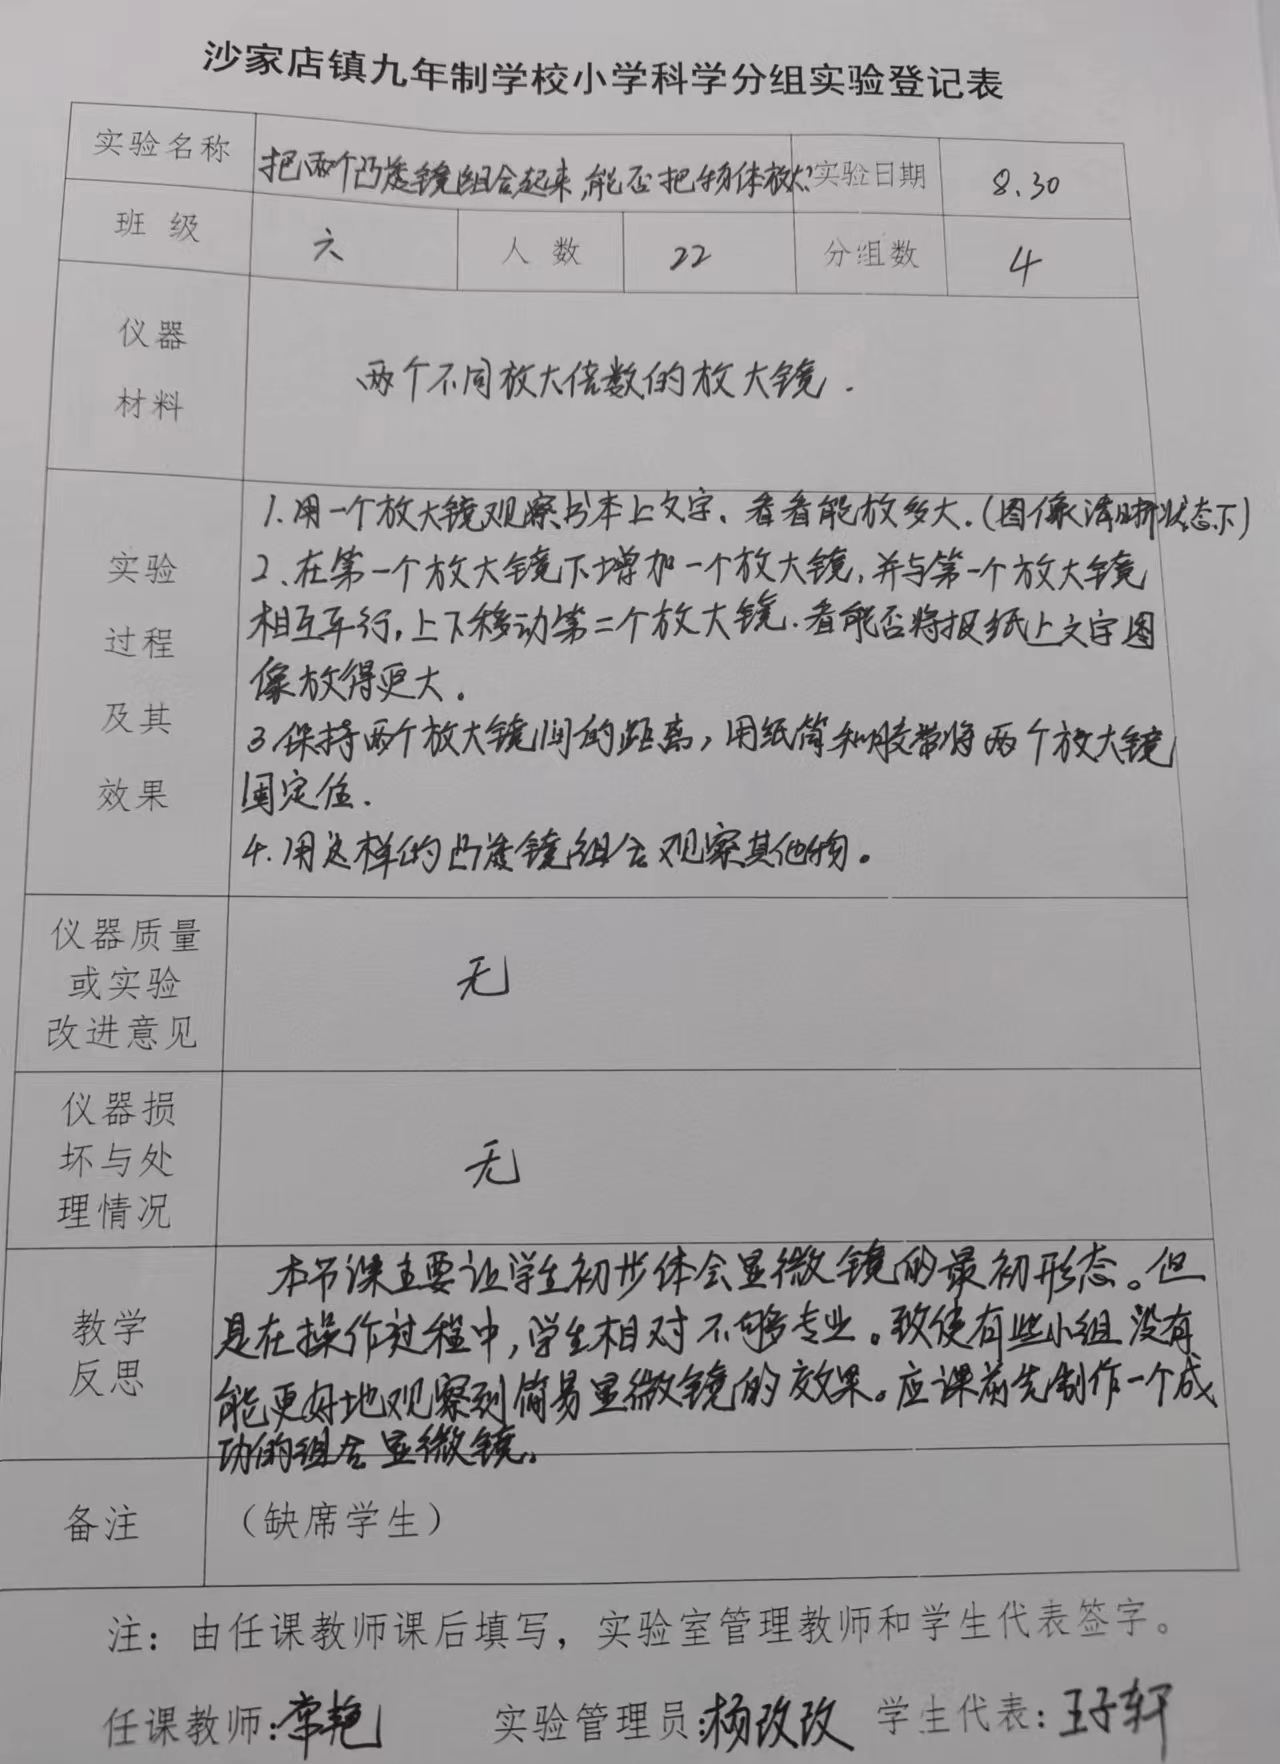 沙家店镇九年制学校小学科学分组实验登记表
实验名称 把两个凸透镜组合起来,能否把物体放大? 实验日期 8.30
班级 六 人数 22 分组数 4
仪器
材料
两个不同放大倍数的放大镜.
实验
过程
及其
效果
1.用一个放大镜观察书本上文字、看看能放多大.(图像清晰状态下)
2、在第一个放大镜下增加一个放大镜,并与第一个放大镜
相互平行,上下移动第二个放大镜.看能否将报纸上文字图
像放得更大.
3.保持两个放大镜间的距离,用纸筒和胶带将两个放大镜
固定住.
4.用这样的凸透镜组合观察其他物。
仪器质量
或实验
改进意见
无
仪器损
坏与处
理情况
无
教学
反思
本节课主要让学生初步体会显微镜的最初形态。但
是在操作过程中,学生相对不够专业。致使有些小组没有
能更好地观察到简易显微镜的效果。应课前先制作一个成
功的组合显微镜。
备注 (缺席学生)
注:由任课教师课后填写,实验室管理教师和学生代表签字。
任课教师:常艳 实验管理员:杨改改 学生代表:王子轩